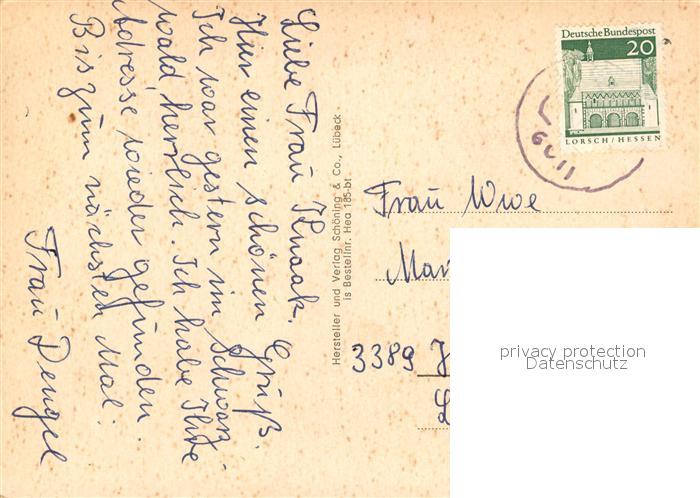 Liebe Frau Knaak.
Hier einen schönen Gruß.
Ich war gestern im Schwarz-
wald, herrlich. Ich habe Ihre
Adresse wieder gefunden.
Bis zum nächsten Mal:
Frau Dengel
Hersteller und Verlag Schöning & Co., Lübeck
is Bestellnr. Hea 185-bt
Deutsche Bundespost
20
LORSCH/HESSEN
Frau Wwe
3389
privacy protection
Datenschutz